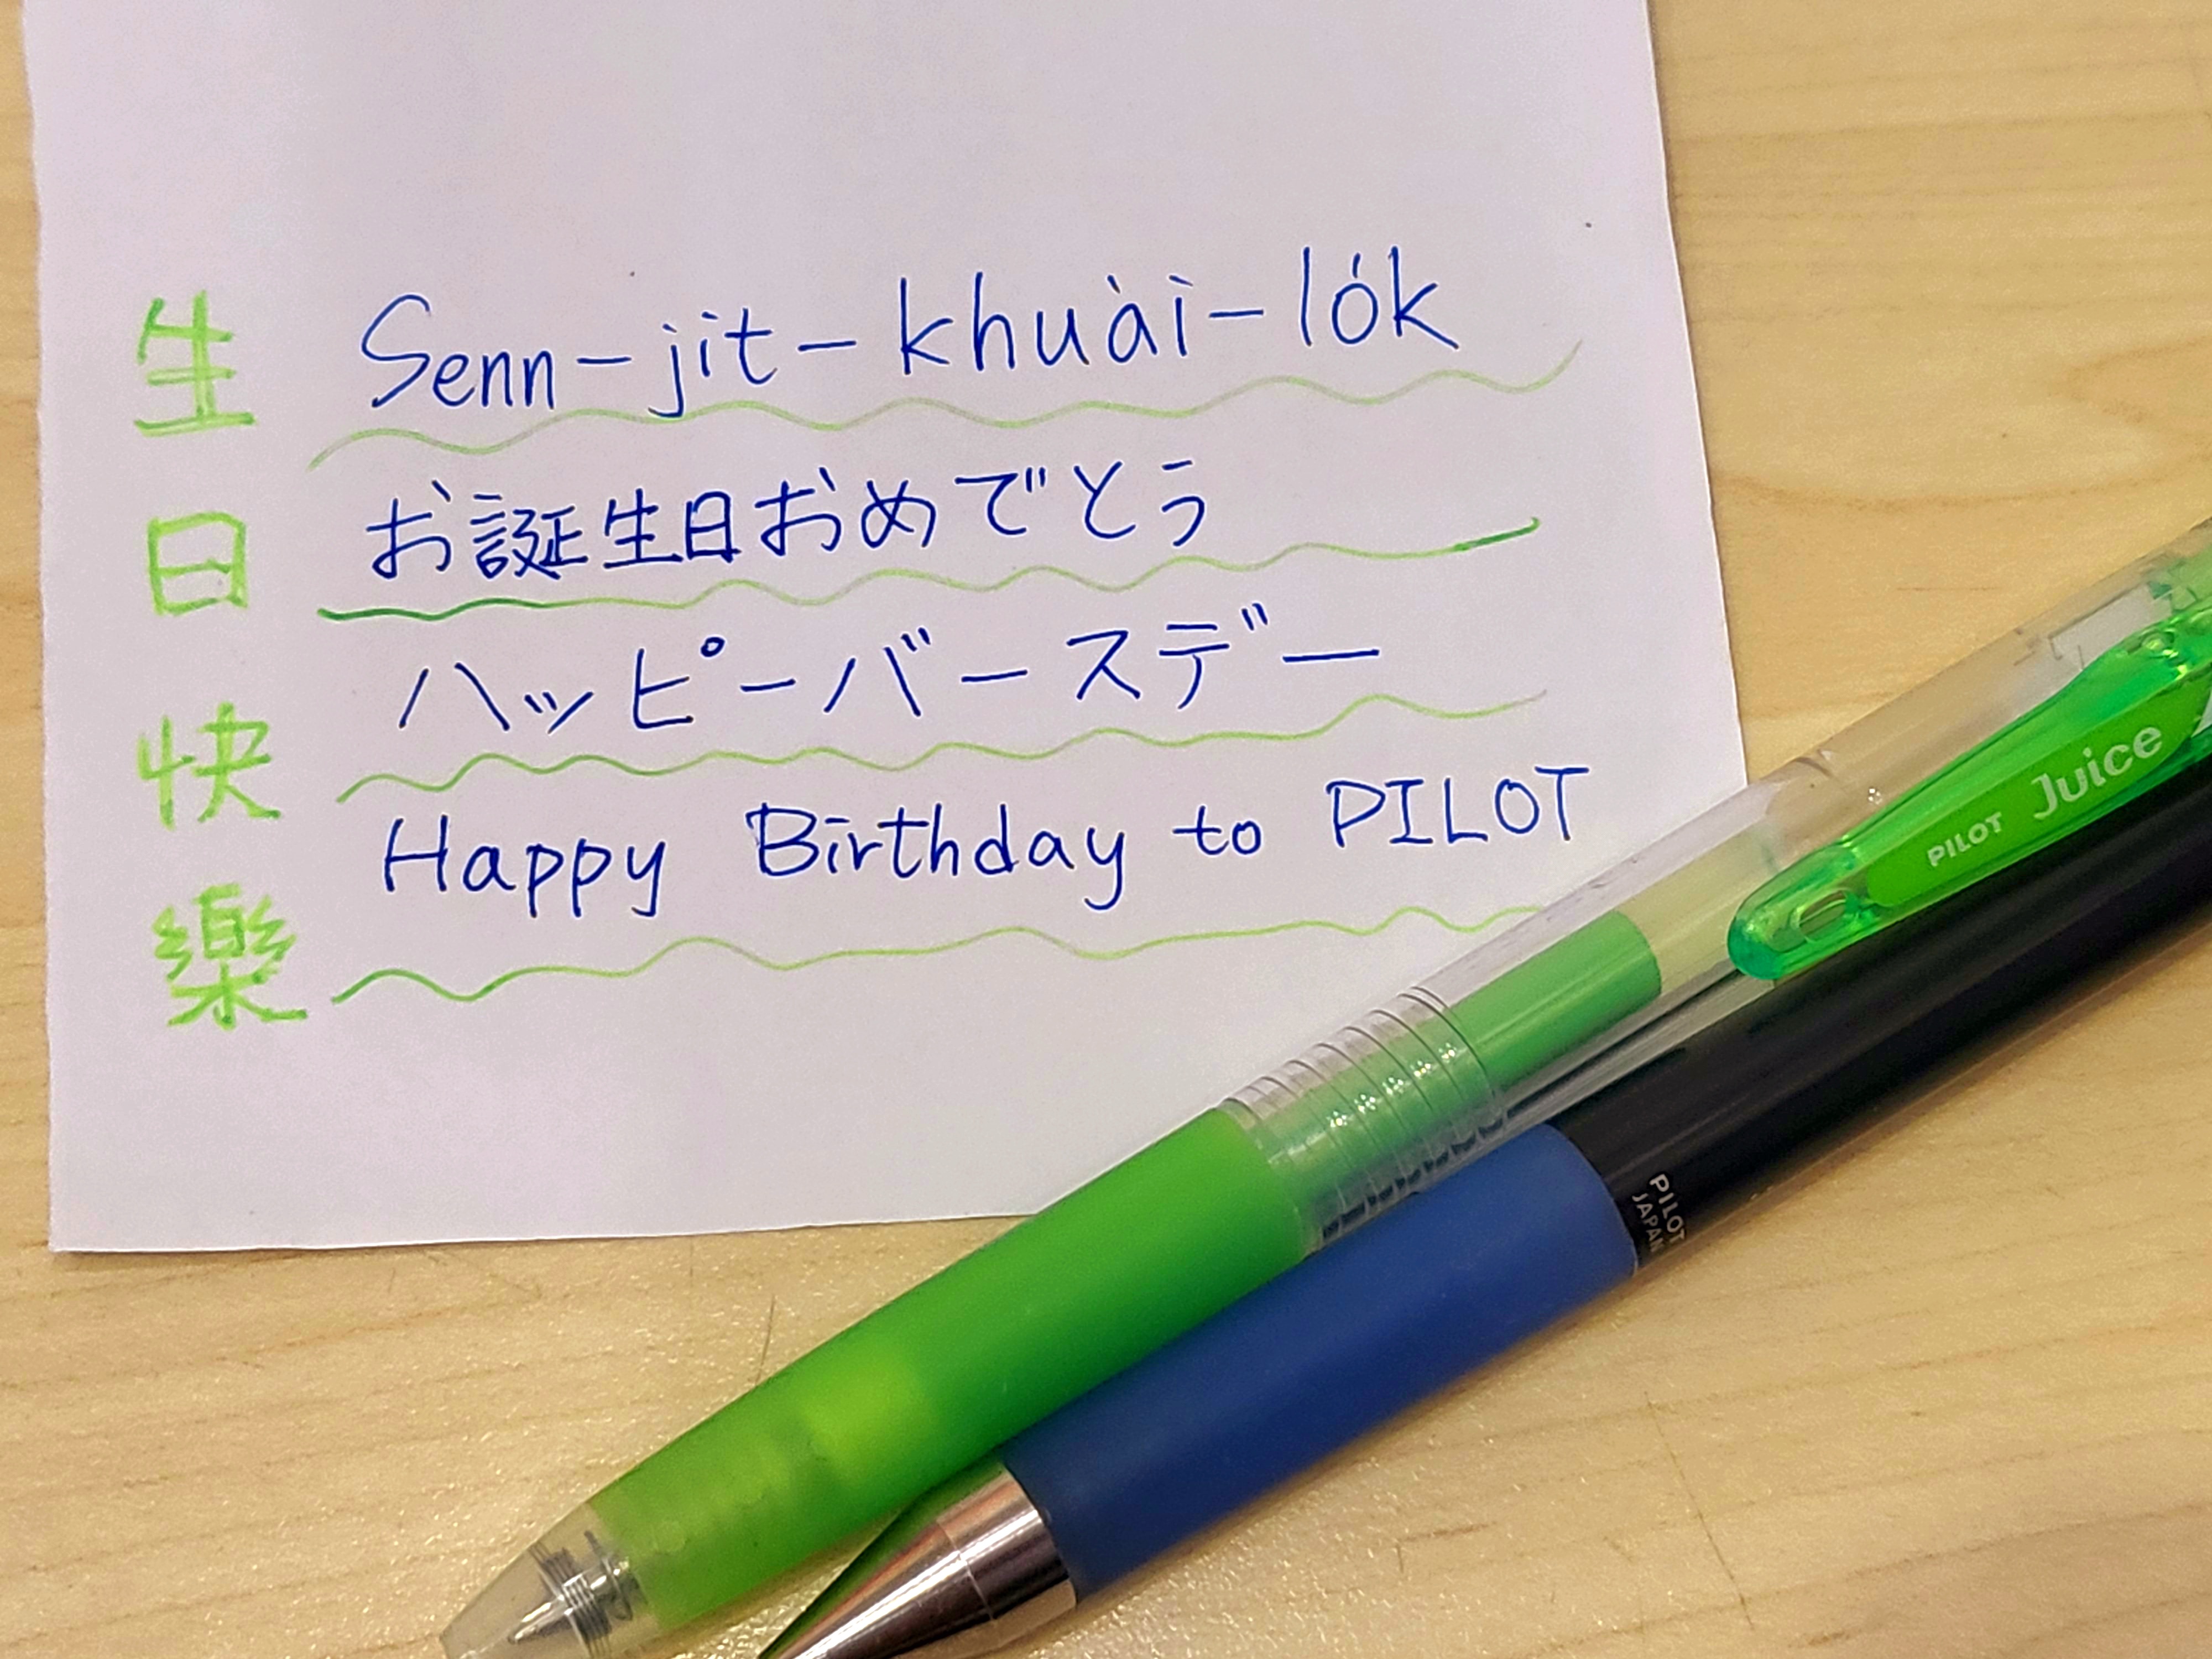 生日快樂
Senn-jit-khuài-lo̍k
お誕生日おめでとう
ハッピーバースデー
Happy Birthday to PILOT
PILOT Juice
PILOT
JAPAN